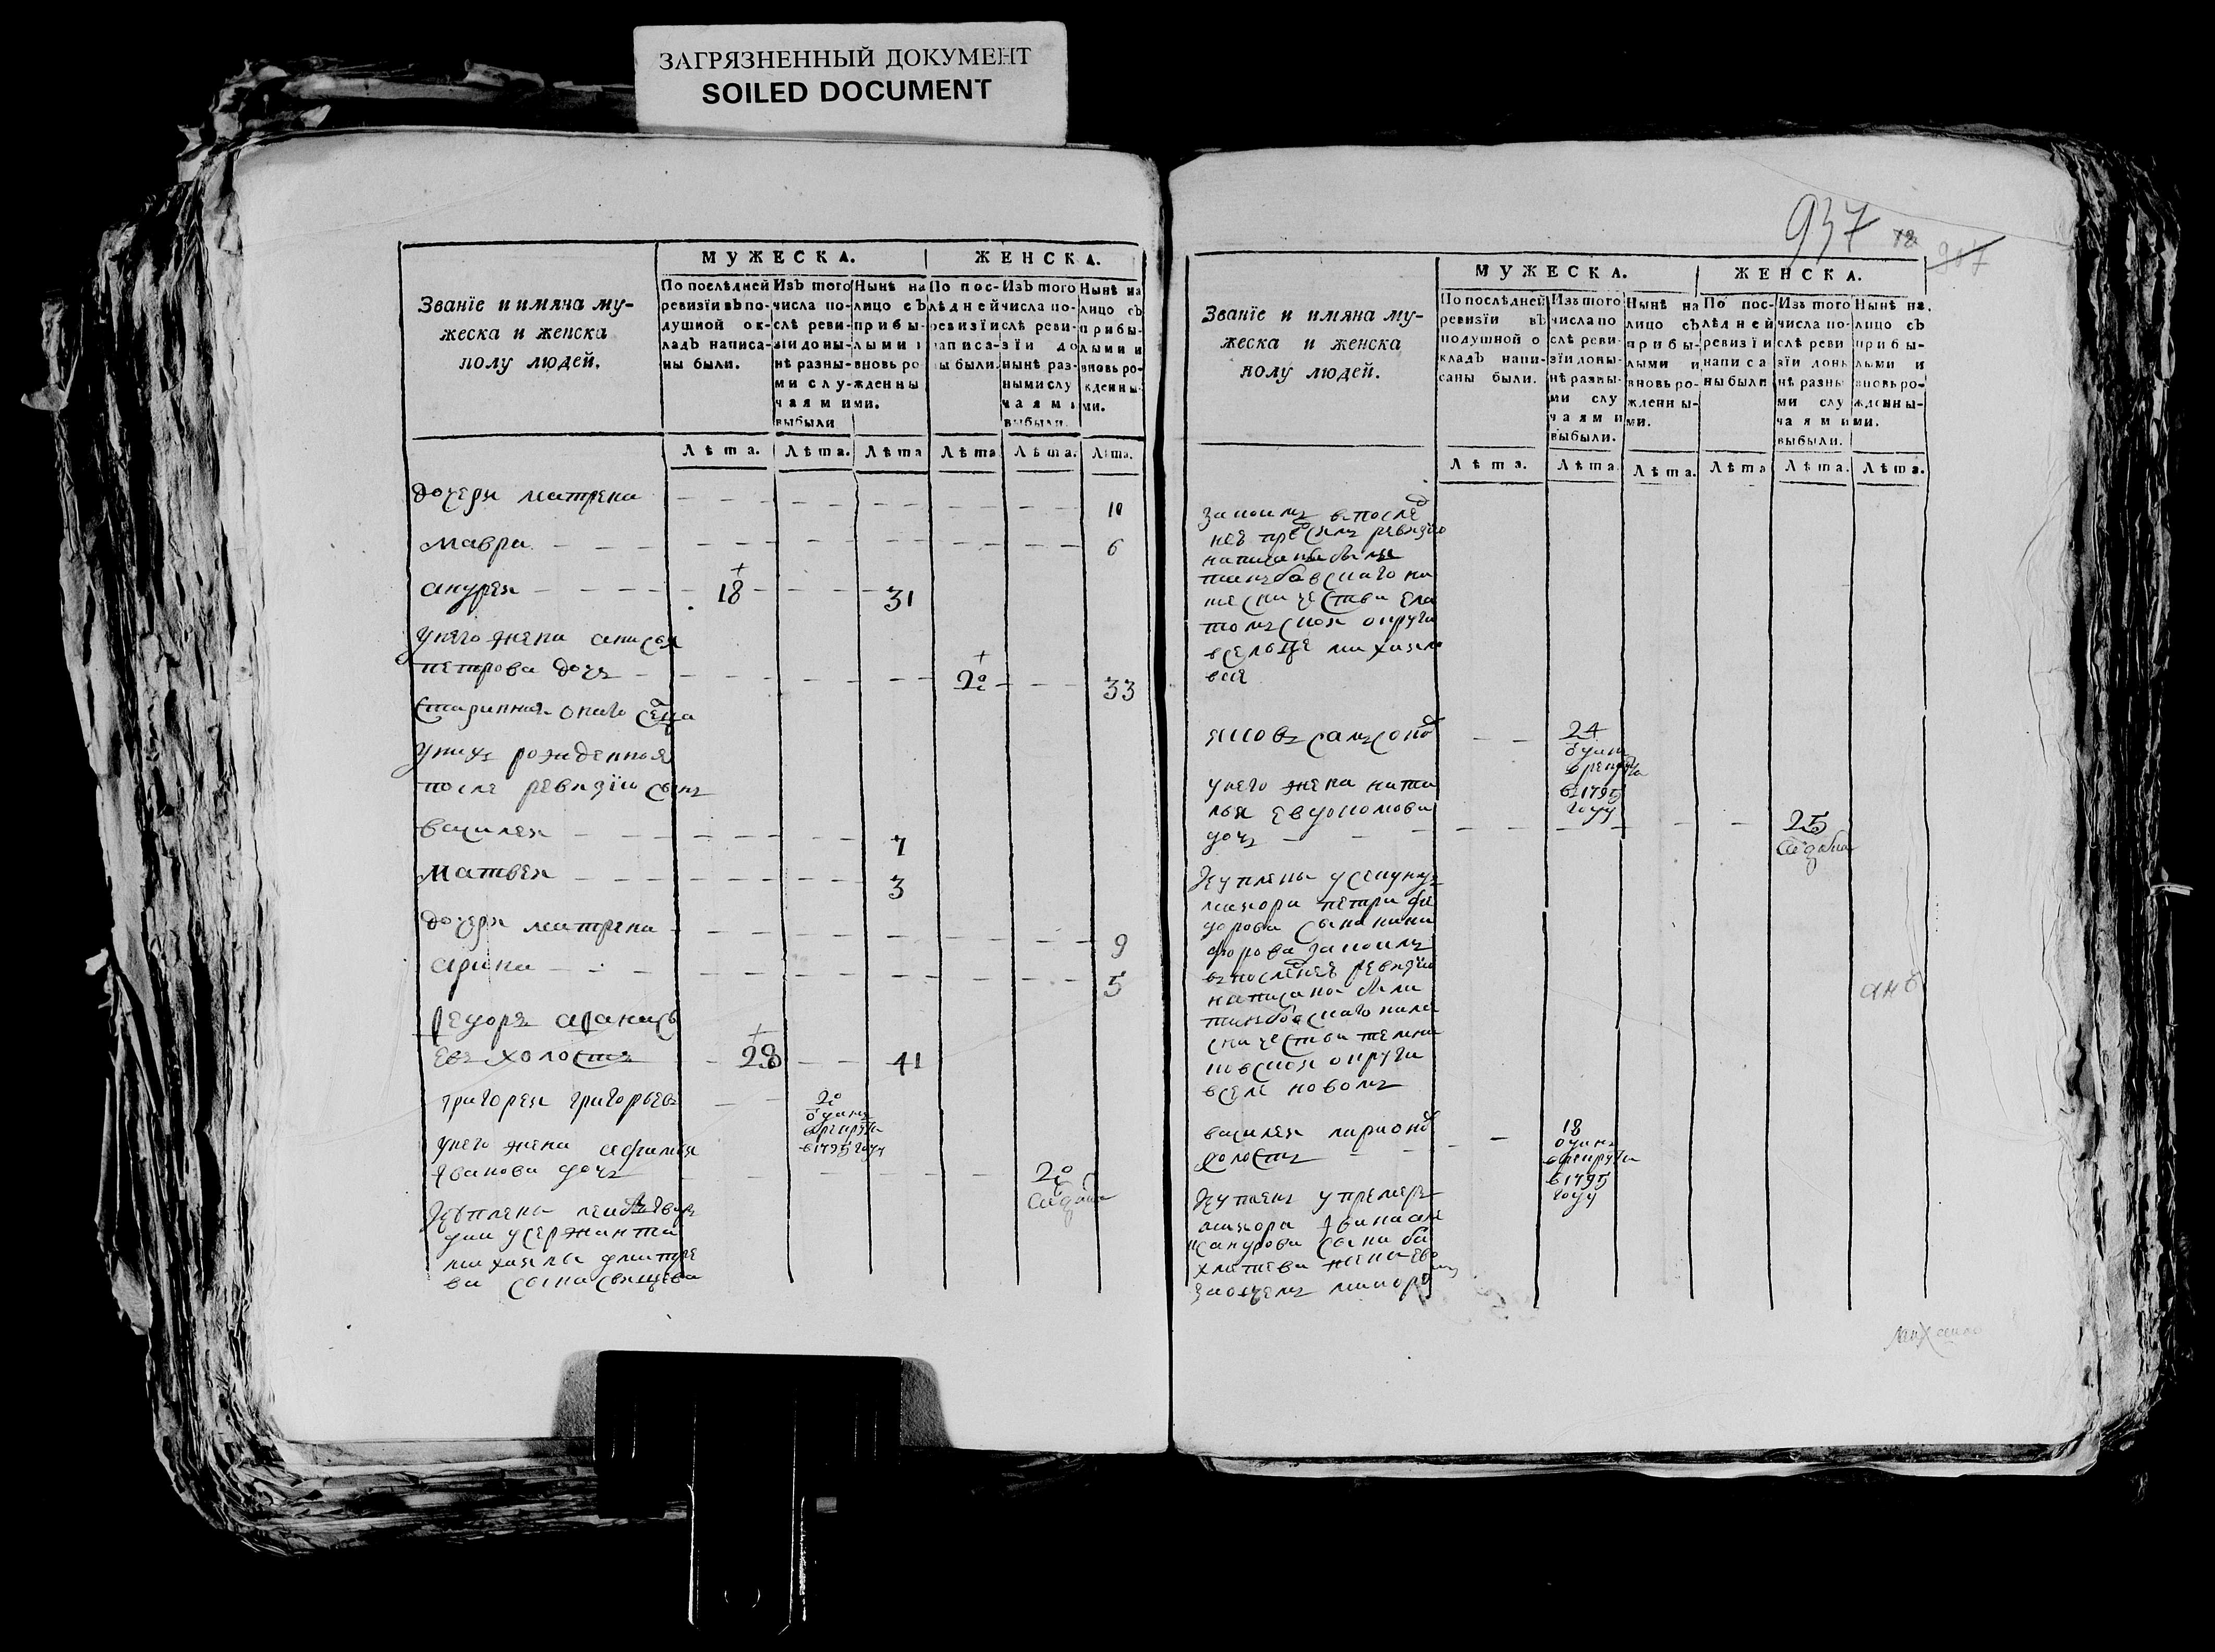 ЗАГРЯЗНЕННЫЙ ДОКУМЕНТ
SOILED DOCUMENT
Званїе и имяна му-
жеска и женска
полу людей.
МУЖЕСКА.
ЖЕНСКА.
По послѣдней
ревизїи въ по-
душной ок-
ладъ написа-
ны были.
Изъ того
числа по-
слѣ реви-
зїи до ны-
нѣ разны-
ми слу-
чаями
выбыли
Нынѣ на
лицо съ
прибы-
лыми и
вновь ро
жденны
ми.
По пос-
лѣдней
ревизїи
написа-
ны были.
Изъ того
числа по-
слѣ реви-
зїи до
нынѣ раз-
ными слу
чаями
выбыли.
Нынѣ на
лицо съ
прибы-
лыми и
вновь ро-
жденны-
ми.
Лѣта. Лѣта. Лѣта Лѣта Лѣта. Лѣта.
дочери матрена 10
мавра 6
андрей 18 31
у него жена анисья
петрова дочь 20 33
старинная оного села
у них рожденныя
после ревизїи сынъ
василей 7
матвей 3
дочери матрена 9
арина 5
федоръ афанась
евъ холостъ 28 41
григорей григорьевъ 20
отданъ
в рекруты
в 1795 году
у него жена афимья
иванова дочь 20
куплены
у сержанта
михаилы дмитре
ва сына свищева
937
907
Званїе и имяна му-
жеска и женска
полу людей.
МУЖЕСКА.
ЖЕНСКА.
По послѣдней
ревизїи въ
подушной о
кладъ напи-
саны были.
Изъ того
числа по
слѣ реви-
зїи до ны-
нѣ разны-
ми слу
чаями
выбыли.
Нынѣ на
лицо съ
прибы-
лыми и
вновь ро-
жденны-
ми.
По пос-
лѣдней
ревизїи
написа
ны были
Изъ того
числа по-
слѣ реви
зїи доны
нѣ разны
ми слу
чаями
выбыли.
Нынѣ на.
лицо съ
прибы-
лыми и
вновь ро-
жденны-
ми.
Лѣта. Лѣта. Лѣта. Лѣта Лѣта. Лѣта.
за коимъ в послед
ней пред симъ ревизїю
написаны были
танбовскаго на
местничества ела
томской округи
в сельце михайло
вке
яковъ самсонов 24
отданъ
в рекруты
в 1795
году
у него жена ната
лья евдокимова
дочь 25
куплены у секундъ
маиора петра фе
дорова сына ники
форова за коимъ
в последней ревизїи
написаны были
танбовскаго наме
сничества темни
ковской округи
в селе новомъ
василей ларионов 18
холостъ
отданъ
в рекруты
в 1795
году
купленъ у премьеръ
маиора ивана але
ксандрова сына ба
хметева жены ево
за онемъ маиоромъ